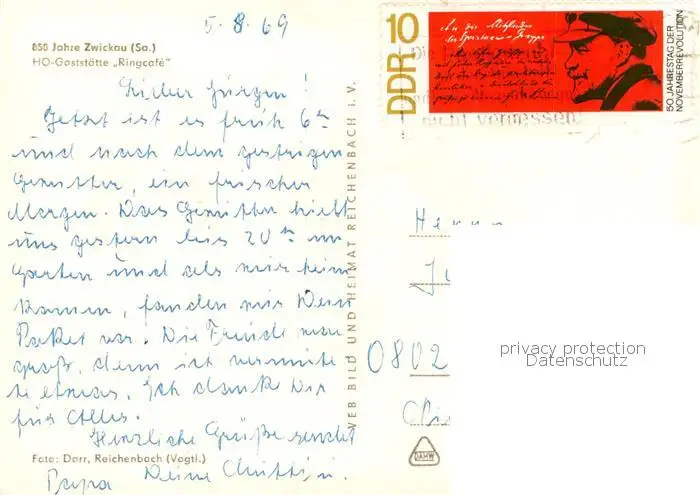 5.8.69
850 Jahre Zwickau (Sa.)
HO-Gaststätte „Ringcafé"
Lieber Jürgen!
Jetzt ist es früh 6 Uhr
und nach dem gestrigen
Gewitter, ein frischer
Morgen. Das Gewitter hielt
uns gestern bis 20 Uhr im
Garten und als wir heim
kamen, fanden wir Dein
Paket vor. Die Freude war
groß, denn ich vermiß
te etwas. Ich danke Dir
für Alles.
Herzliche Grüße sendet
Foto: Darr, Reichenbach (Vogtl.)
Papa Deine Mutti
VEB BILD UND HEIMAT REICHENBACH i. V.
10
DDR
An die Mitglieder
der Spartacus-Gruppe
50. JAHRESTAG DER
NOVEMBERREVOLUTION
nicht vergessen!
Herrn
0802
privacy protection
Datenschutz
DAMW